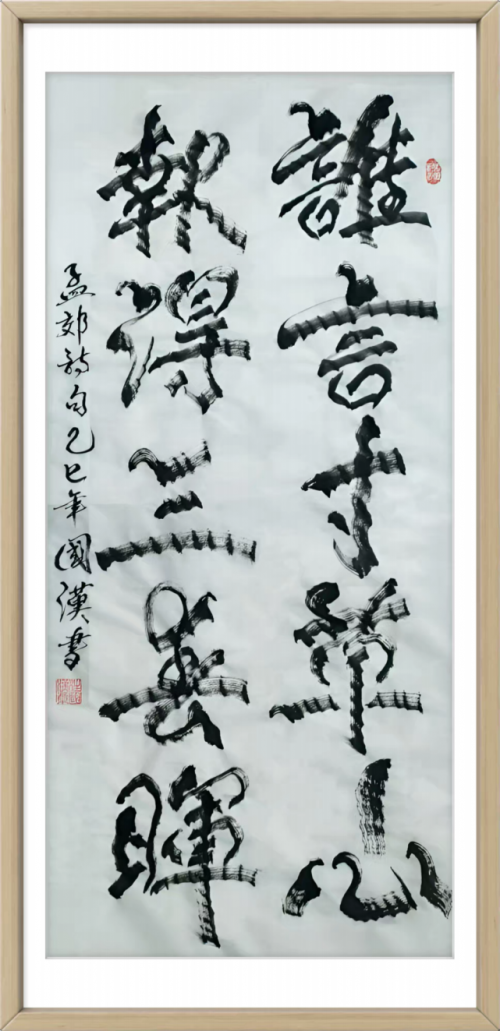 誰言寸草心
報得三春暉
孟郊詩句乙巳年國漢書